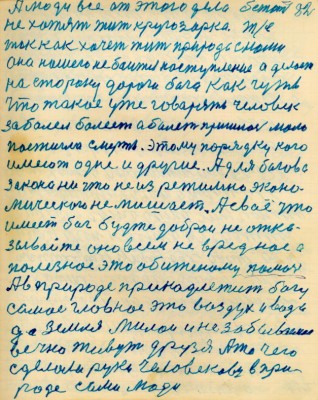 А люди все от этого дела бегают 32
не хотят жит кругозарка. Т/е
так как хочет жит природа с ними
она нашего не боится наступление а делает
на сторону дорога бога как чуть
что такое уже говарять человек
заболел болеет а болеть пришлось мало
постигла смерть. Этому порядку, кого
имеют одне и другие. А для богова
закона ни что не из режимно эконо-
мического не мишает. А своё что
имеет бог будте добраи не отка-
зывайте оно всем не вредное а
полезное это обиженому помоч
А в природе принадлежит богу
самое гловное это воздух и вода
да Земля милои и не забываемые
вечно живут друзя А то чего
сделали руки человекову в при-
роде сами люди